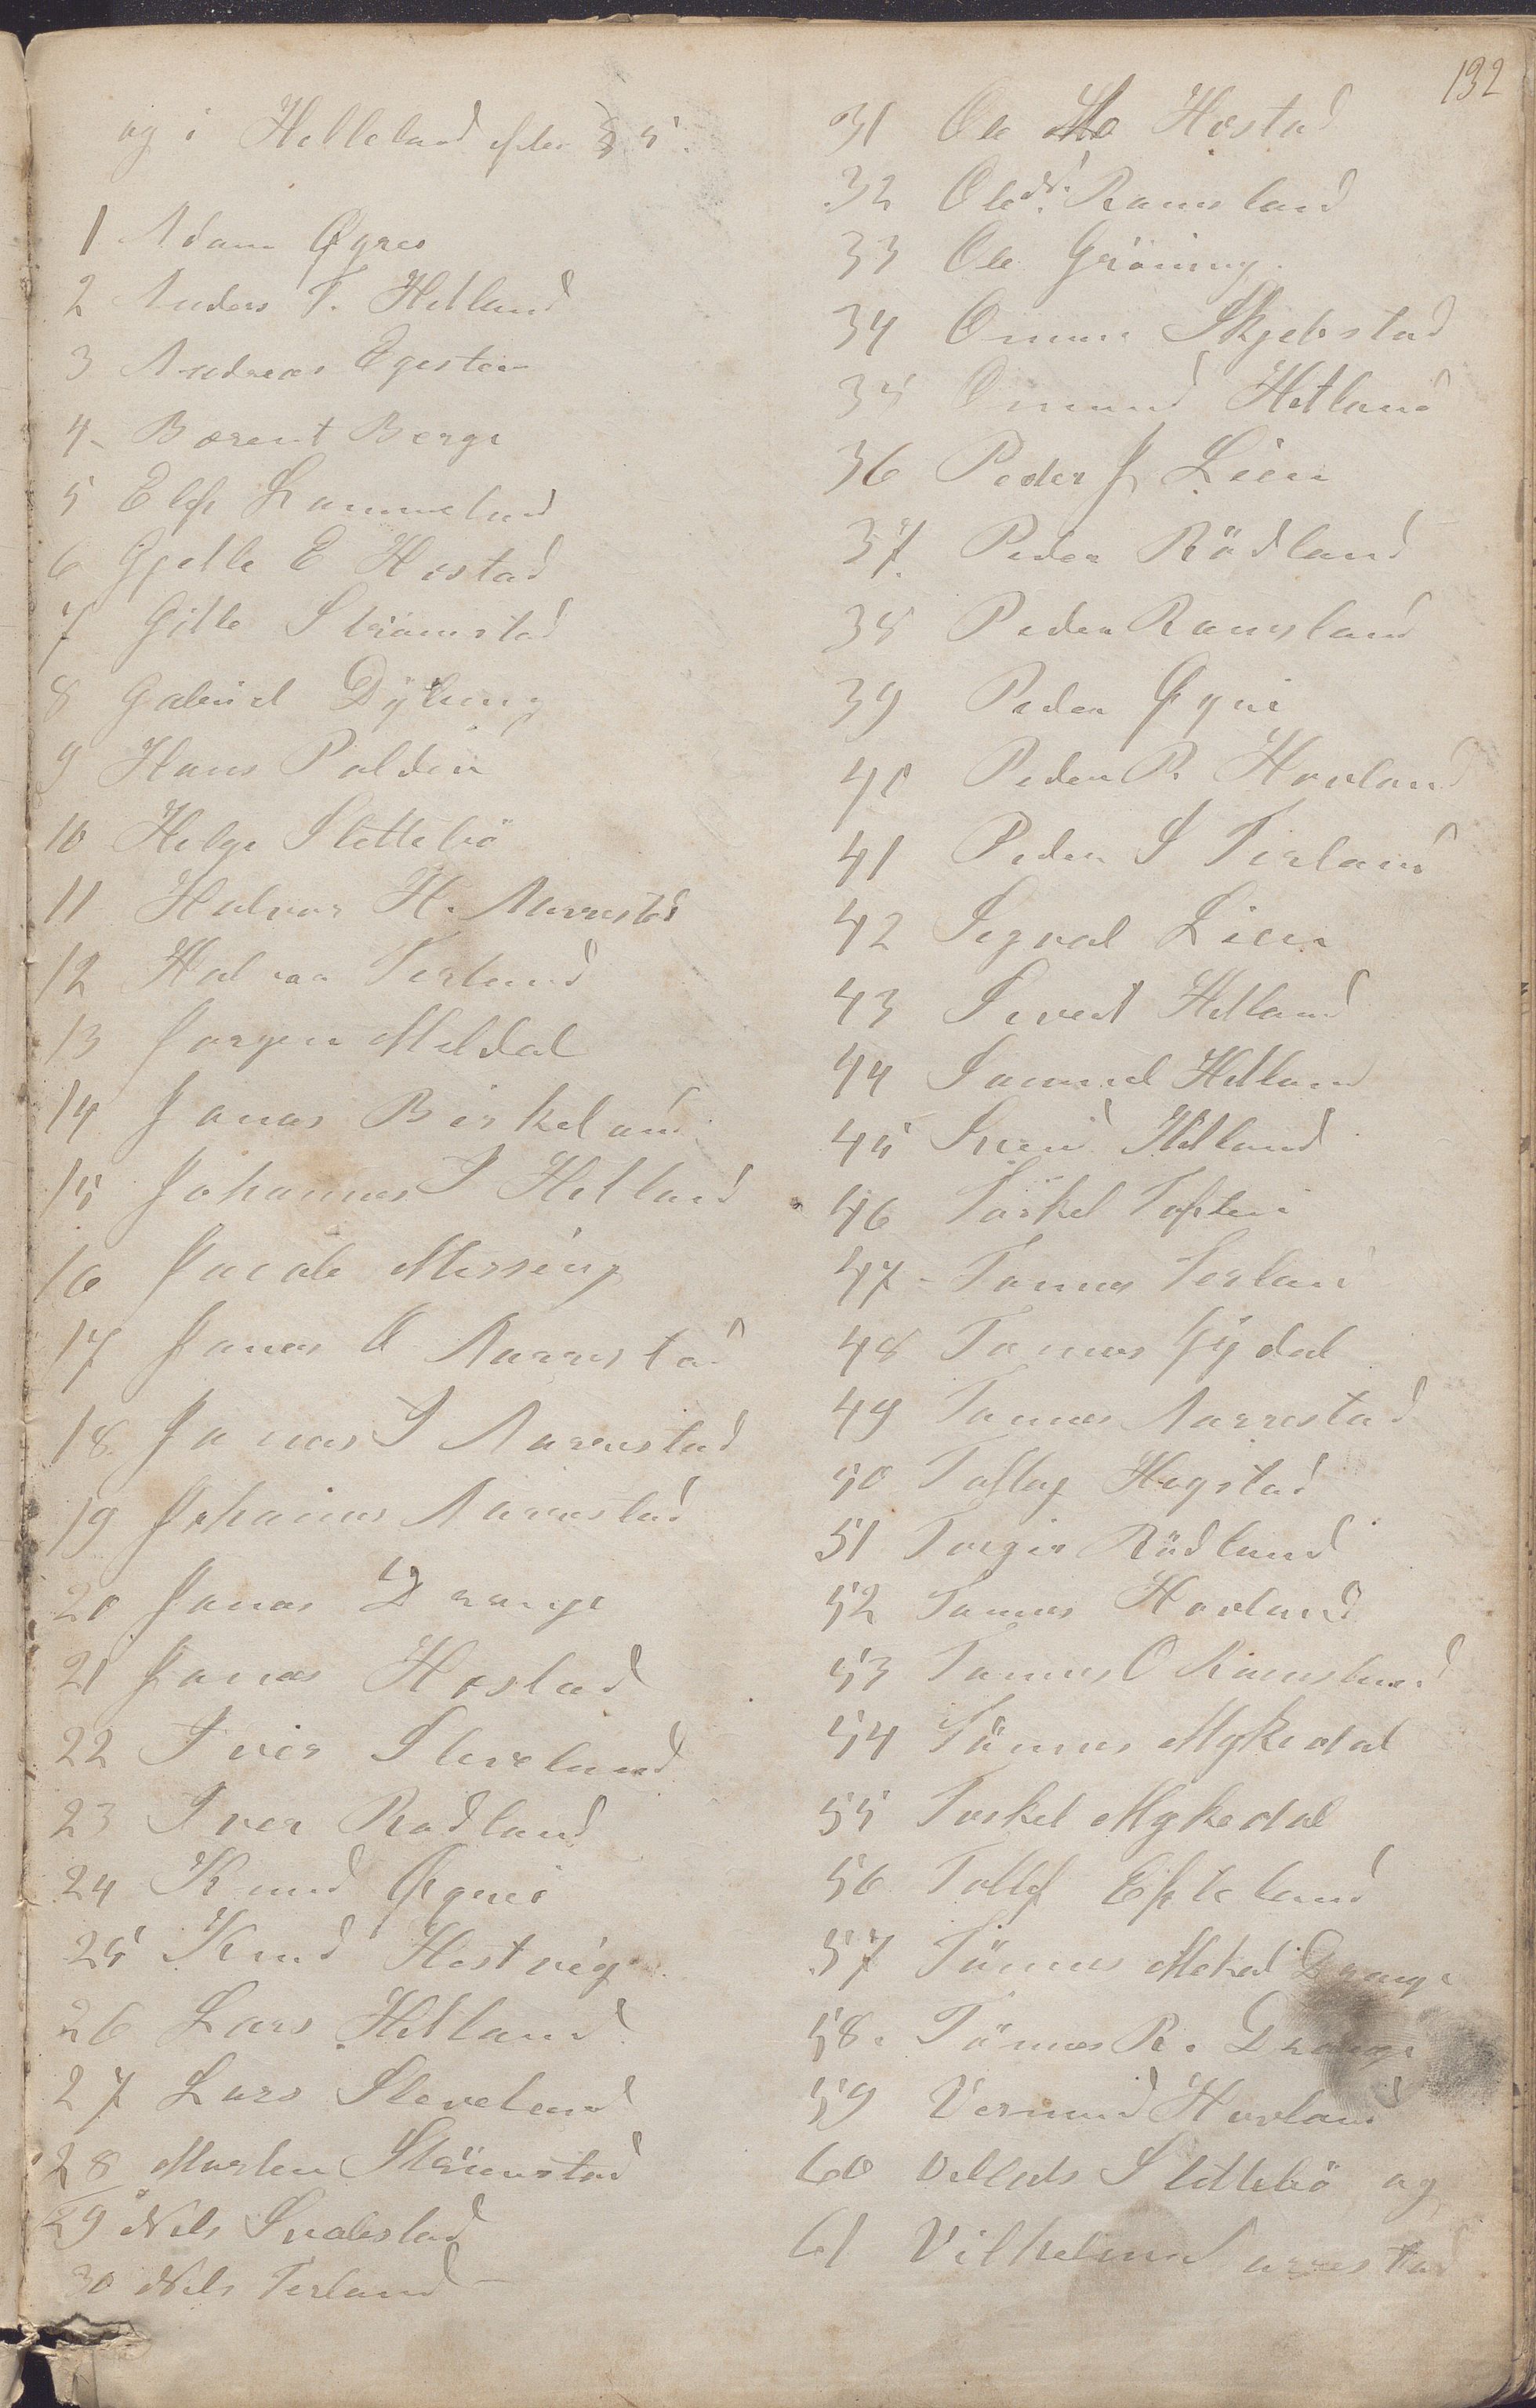 132
og i Helleland efter § 5.
1 Adam Øgrei
2 Anders T. Hetland
3 Andreas Egestein
4 Bærent Berge
5 Elef Lammeland
6 Gjelle E Hestad
7 Gitle Strömstad
8 Gabriel Dyling
9 Hans Poldin
10 Helge Slettebö
11 Halvor H. Aarrestad
12 Halvor Terland
13 Jørgen Meldal
14 Jonas Birkeland
15 Johannes J Hetland
16 Jacob Messing
17 Jonas O Aarrestad
18 Jonas J Aarrestad
19 Johannes Aarrestad
20 Jonas Drange
21 Jonas Hostad
22 Iver Sleveland
23 Iver Rødland
24 Knud Øgrei
25 Knud Hestvig
26 Lars Hetland
27 Lars Sleveland
28 Morten Strömstad
29 Nils Svalestad
30 Nils Terland
31 Ole Hostad
32 Ole Ramsland
33 Ole Gröning
34 Ommun Skjebstad
35 Ommund Hetland
36 Peder J Lien
37 Peder Rödland
38 Peder Ramsland
39 Peder Øgrei
40 Peder P. Hovland
41 Peder S Terland
42 Segval Lien
43 Severt Hetland
44 Samuel Hetland
45 Svend Hetland
46 Törkel Toften
47 Tønnes Terland
48 Tønnes Gydal
49 Tønnes Aarrestad
50 Tollag Hegstad
51 Torger Rödland
52 Tønnes Hovland
53 Tønnes O Ramsland
54 Tönnes Mykedal
55 Torkel Mykedal
56 Tollef Efteland
57 Tönnes Drange
58. Tönnes R. Drange
59 Vermund Hovland
60 Slettebö og
61 Vilhelm Aarrestad